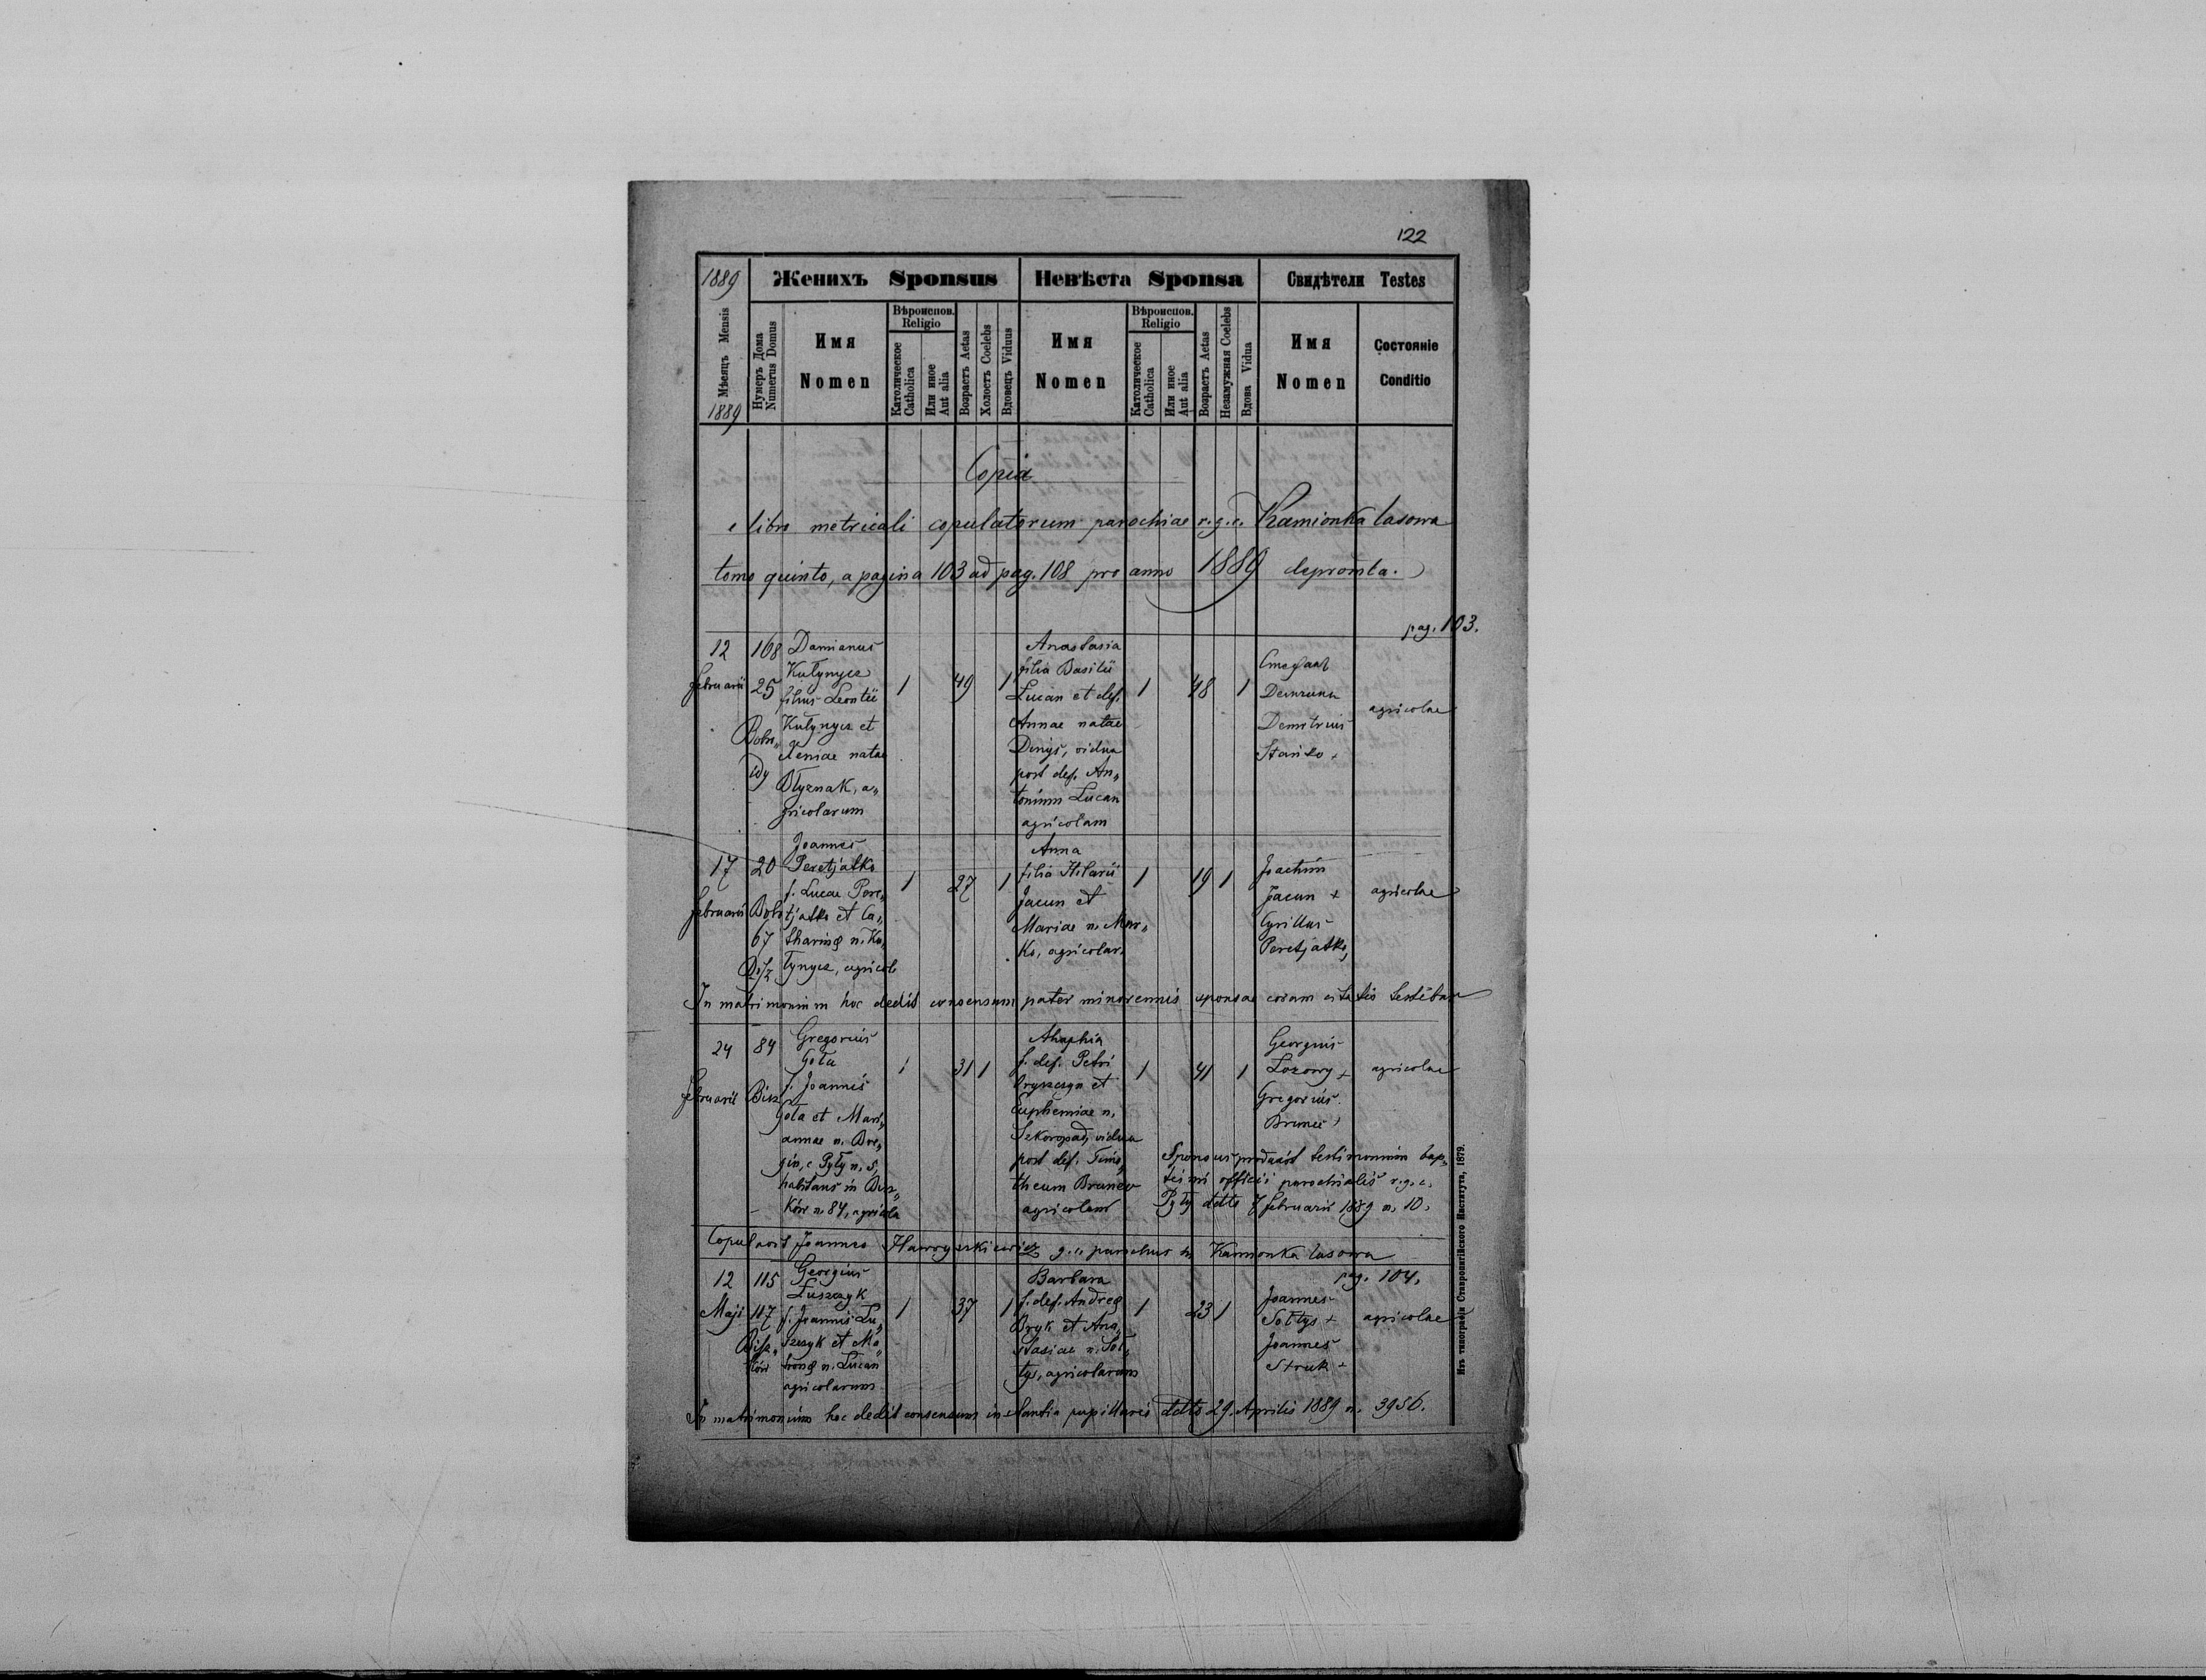 122
1889 Женихъ Sponsus Невѣста Sponsa Свидѣтели Testes
Мѣсяцъ Mensis 1889
Нумеръ Дома Numerus Domus
Имя Nomen
Вѣроиспов. Religio
Католическое Catholica
Или иное Aut alia
Возрастъ Aetas
Холостъ Coelebs
Вдовецъ Viduus
Имя Nomen
Вѣроиспов. Religio
Католическое Catholica
Или иное Aut alia
Возрастъ Aetas
Незамужная Coelebs
Вдова Vidua
Имя Nomen
Состояніе Conditio
Copia
e libro metricali copulatorum parochiae r.g.c. Kamionka lasowa
tomo quinto, a pagina 103 ad pag. 108 pro anno 1889 depromta.
pag. 103.
12 Februarii
168
25
Damianus
Kułynycz
filius Leontii
Kułynycz et
Xeniae natae
Dłyznak, a„
gricolarum
1 49 1
Anastasia
filia Basilii
Lucan et def.
Annae natae
Denys, vidua
post def. An„
tonium Lucan
agricolam
1 48 1
Demetrius
Stańko +
agricolae
17 Februarii
20
67
Joannes
Peretjatko
f. Lucae Pere„
tjatko et Ca„
tharinę n. Ku„
łynycz, agricol.
1 27 1
Anna
filia Hilarii
Jacun et
Mariae n. Mur„
ko, agricolar.
1 19 1
Joachim
Jacun +
Cyrillus
Peretjatko,
agricolae
In matrimonium hoc dedit consensum pater minorennis sponsae coram citatis testibus
24 Februarii
84
Bisz
Gregorius
Gola
f. Joannis
Gola et Mari„
annae n. Bre„
gin, e Pyły n. 5,
habitans in Bisz„
ków n. 84, agricola
1 31 1
Ahaphia
f. def. Petri
Oryszczyn et
Euphemiae n.
Szkoropad, vidua
post def. Timo„
theum Brunec
agricolam
1 41 1
Georgius
Lozowy +
Gregorius
Brunec
agricolae
Sponsus produxit testimonium bap„
tismi officii parochialis r.g.c.
Pyły ddto 7 februarii 1889 n. 10.
Copulavit Joannes Hawryszkiewicz g.c. parochus in Kamionka lasowa
pag. 104.
12 Maji
115
117
Bisz„
ków
Georgius
Łuszczyk
f. Joannis Łu„
szczyk et Ma„
tronę n. Lucan
agricolarum
1 37 1
Barbara
f. def. Andreę
Bryk et Ana„
stasiae n. Soł„
tys, agricolarum
1 23 1
Joannes
Sołtys +
Joannes
Struk +
agricolae
In matrimonium hoc dedit consensum instantia pupillaris ddto 29. Aprilis 1889 n. 3956.
Изъ типографіи Ставропигійского Института, 1879.